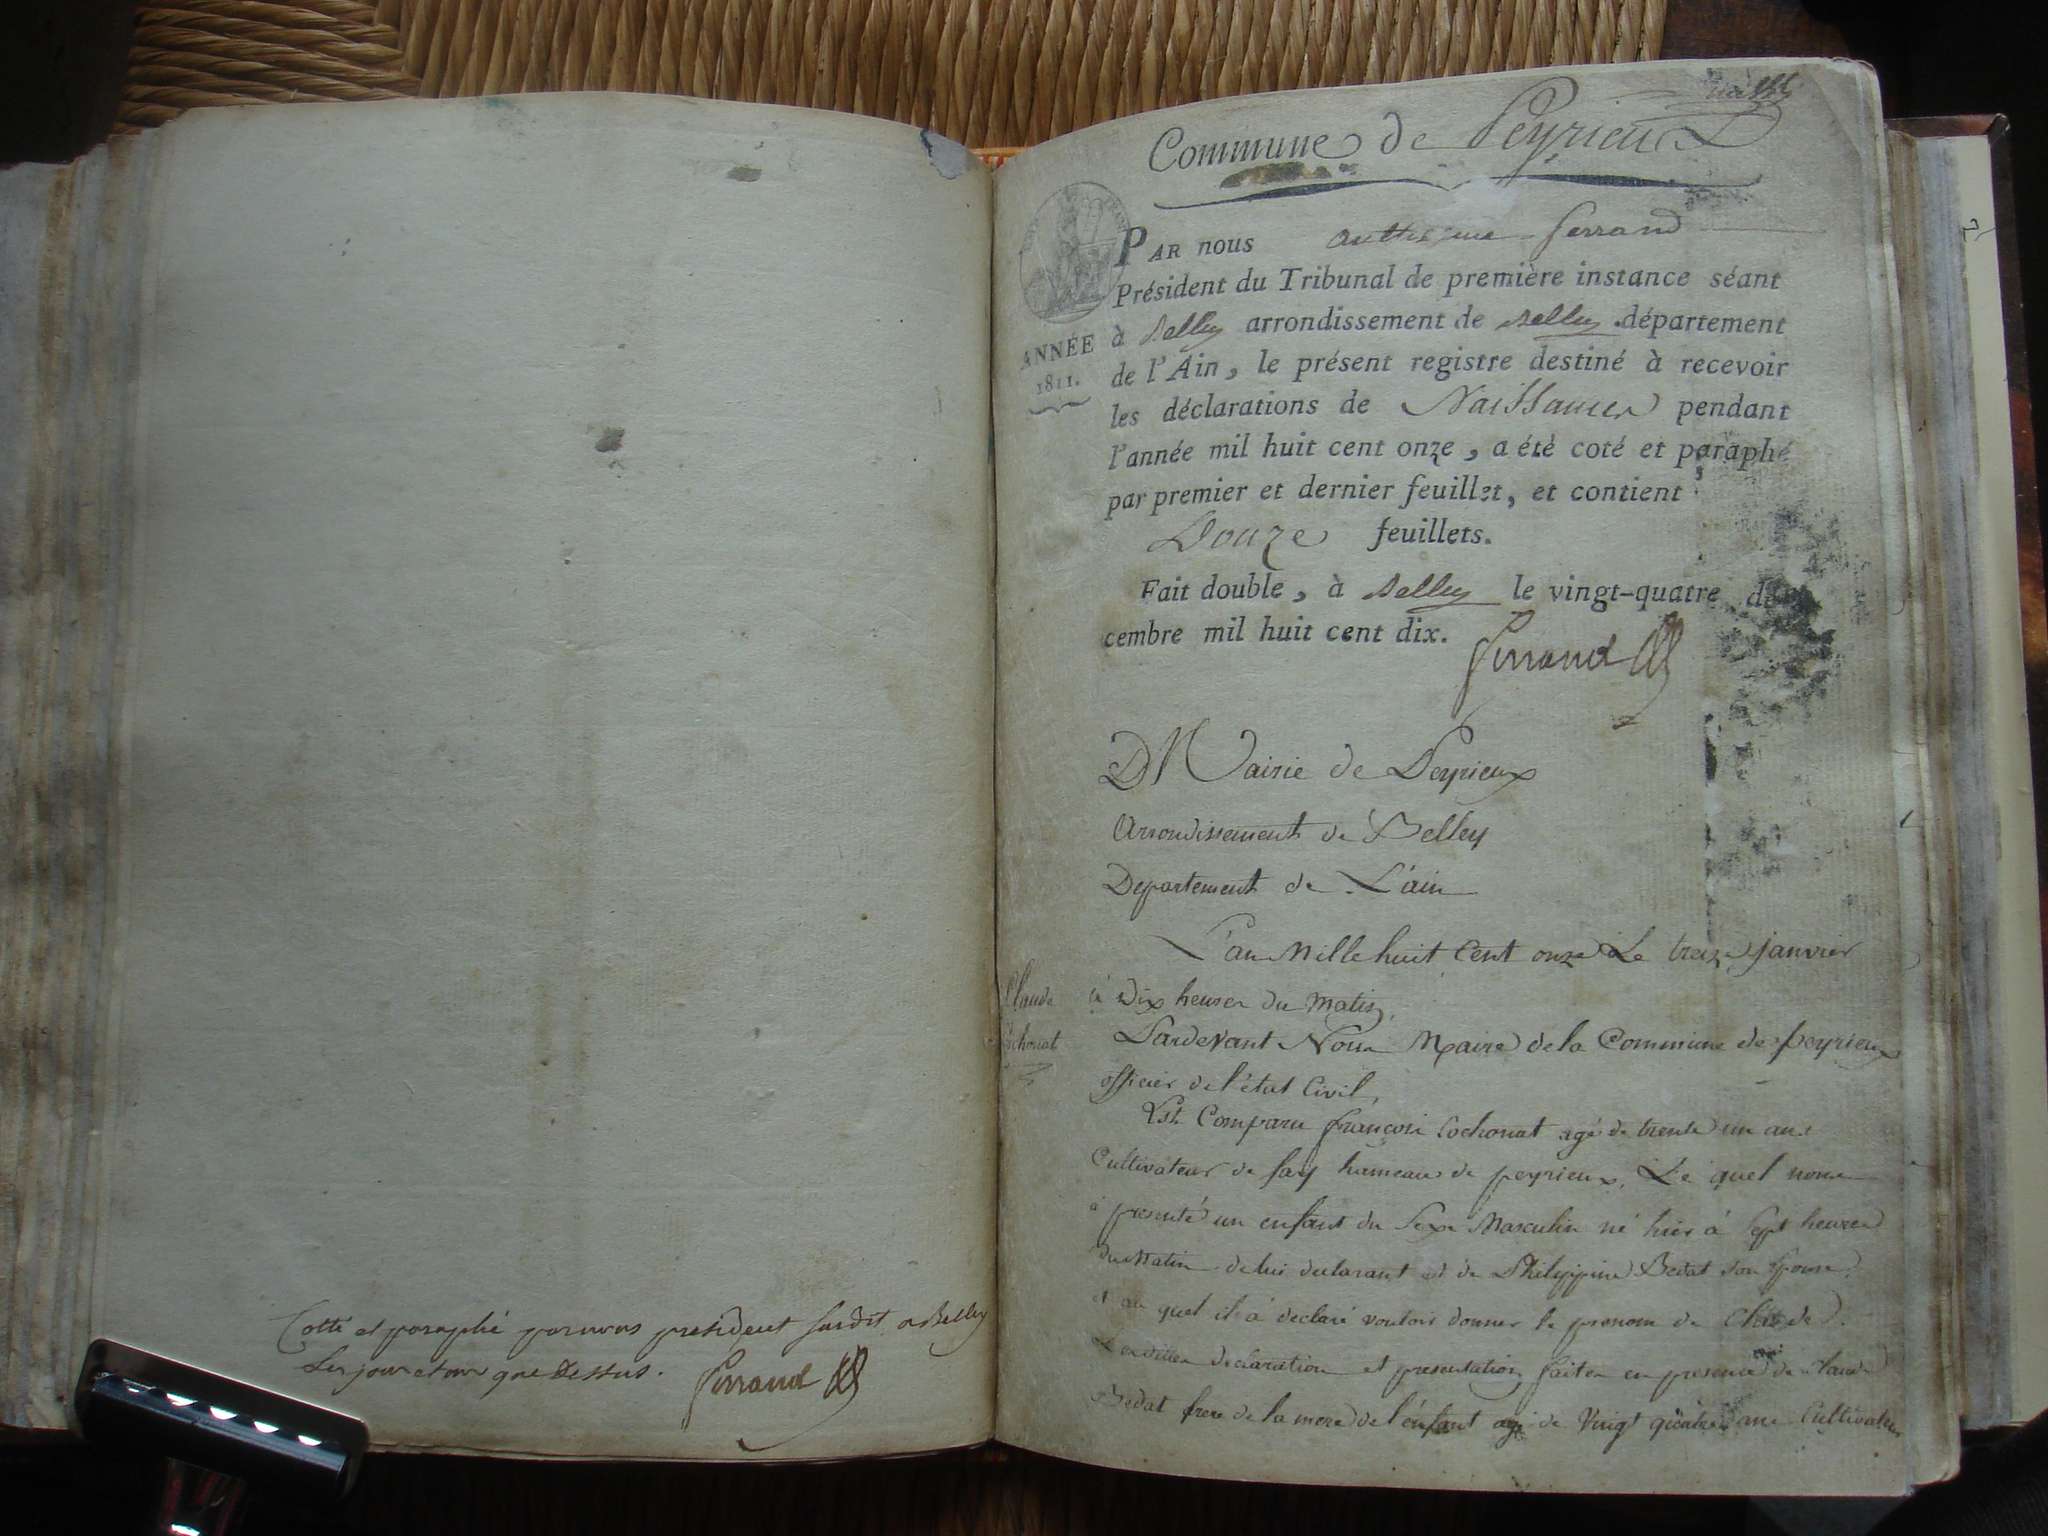 Cotté et paraphé par nous président susdit a Belley
Les jour et an que Dessus. Ferrand
Commune de Peyrieux
PAR nous anthelme ferrand
Président du Tribunal de première instance séant
à Belley arrondissement de Belley département
ANNÉE
1811.
de l'Ain, le présent registre destiné à recevoir
les déclarations de Naissances pendant
l'année mil huit cent onze, a été coté et paraphé
par premier et dernier feuillet, et contient
Douze feuillets.
Fait double, à Belley le vingt-quatre dé-
cembre mil huit cent dix. Ferrand
Mairie de Peyrieux
Arrondissement de Belley
Departement de L'ain
L'an Mille huit Cent onze Le treize janvier
à Dix heures du Matin,
Claude
Cochonat
Pardevant Nous Maire de la Commune de peyrieux
officier de l'état Civil,
Est Comparu françois Cochonat agé de trente un ans
Cultivateur de fay hameau de peyrieux, Le quel nous
à presenté un enfant du Sexe Masculin né hier à Sept heures
du Matin de lui declarant et de Philippine Bedat son Epouse
et au quel il à declaré vouloir donner le prenom de Claude.
Lesdites declaration et presentation faites en presence de Claude
Bedat frere de la mere de l'enfant agé de Vingt quatre ans Cultivateur